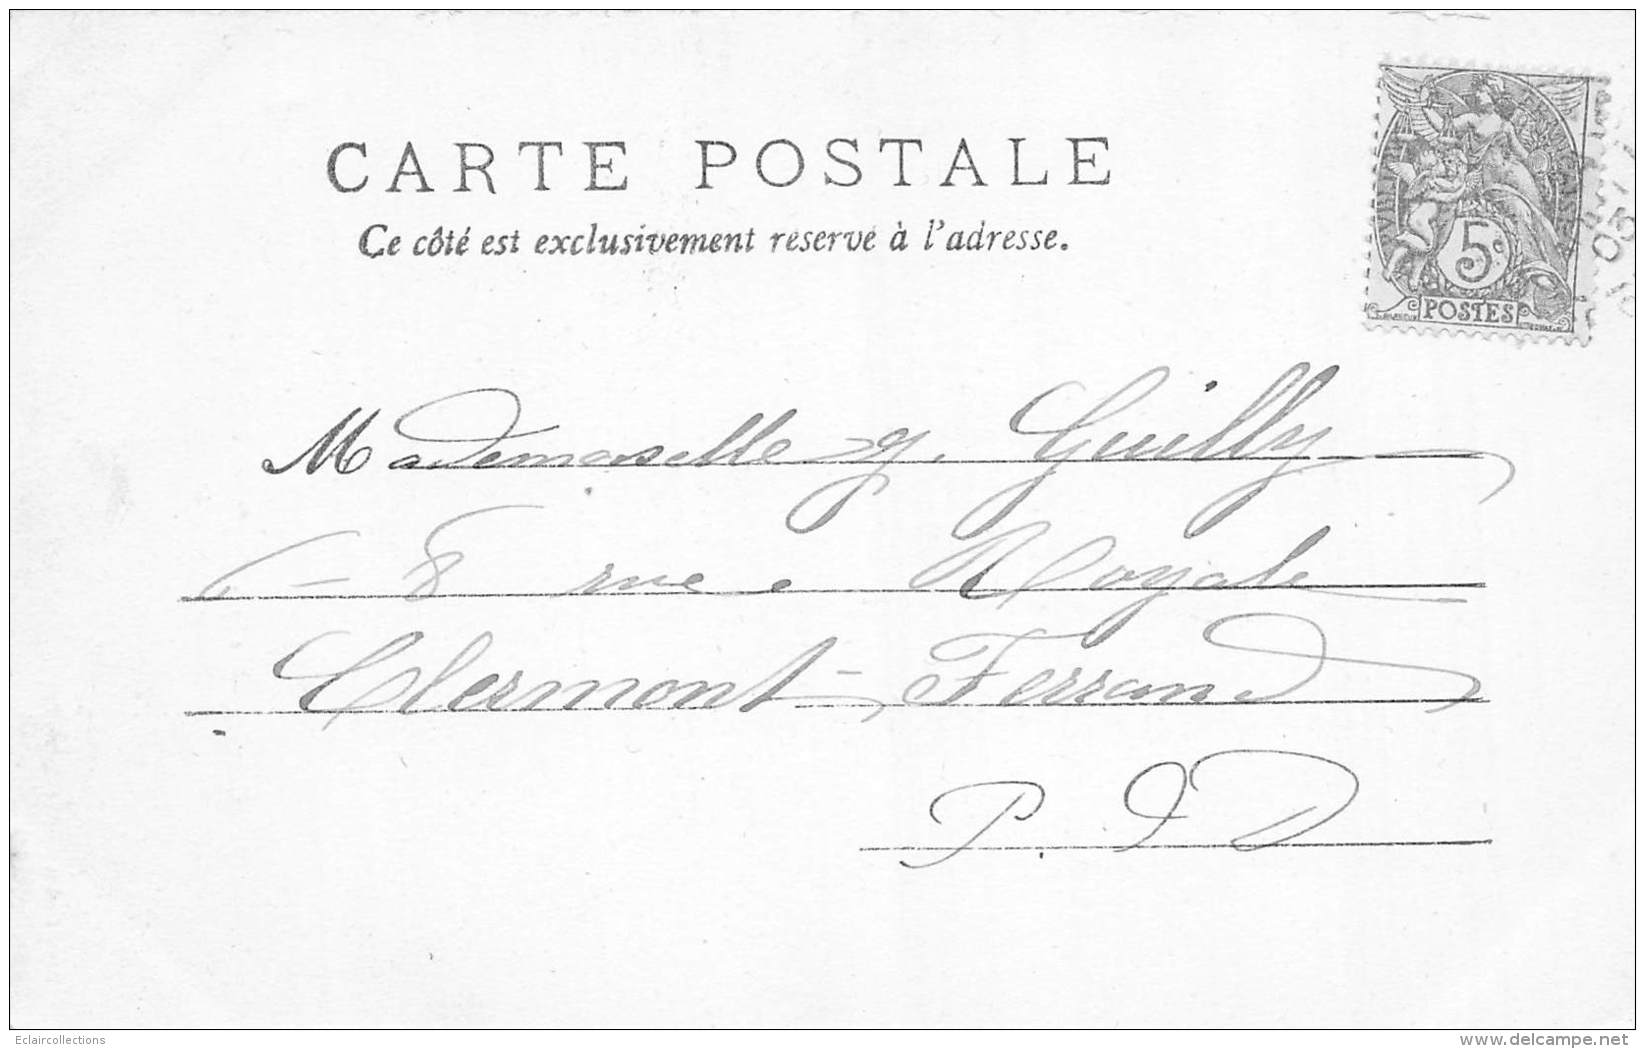 CARTE POSTALE
Ce côté est exclusivement réservé à l'adresse.
5c
POSTES
Mademoiselle g. Guilly
8 rue Royale
Clermont-Ferrand
P. D D
Eclaircollections
www.delcampe.net